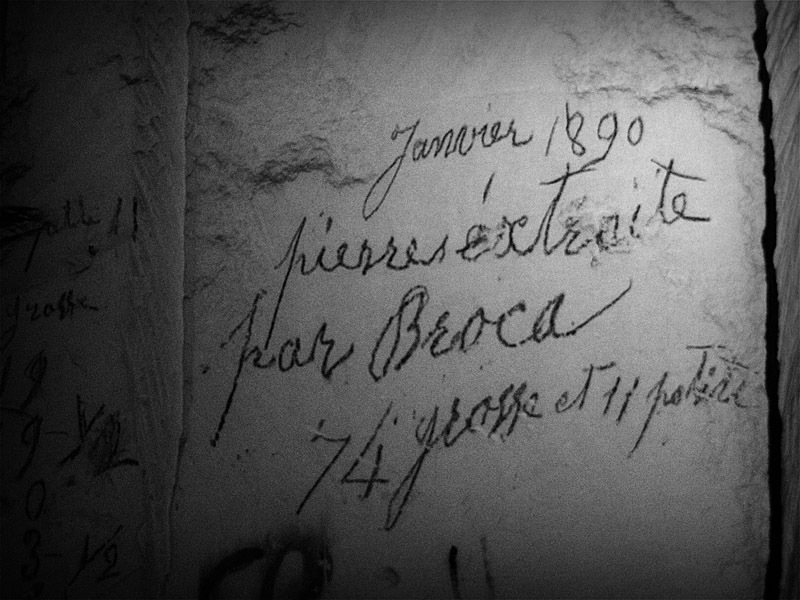 Janvier 1890
pierres éxtraite
par Broca
74 grosse et 11 petite
petite 11
grosse
19
9 - 1/2
0
3 - 1/2